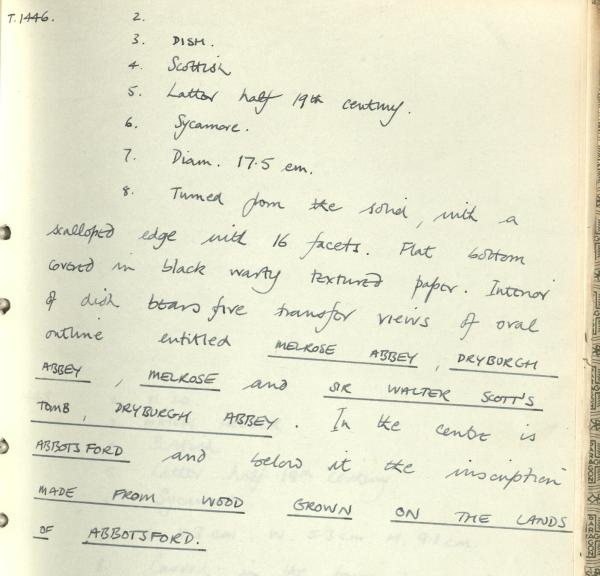 T.1446. 2.
3. DISH.
4. Scottish
5. Latter half 19th century.
6. Sycamore.
7. Diam. 17.5 cm.
8. Turned from the solid, with a
scalloped edge with 16 facets. Flat bottom
covered in black warty textured paper. Interior
of dish bears five transfer views of oval
outline entitled MELROSE ABBEY, DRYBURGH
ABBEY, MELROSE and SIR WALTER SCOTT'S
TOMB, DRYBURGH ABBEY. In the centre is
ABBOTSFORD and below it the inscription
MADE FROM WOOD GROWN ON THE LANDS
OF ABBOTSFORD.